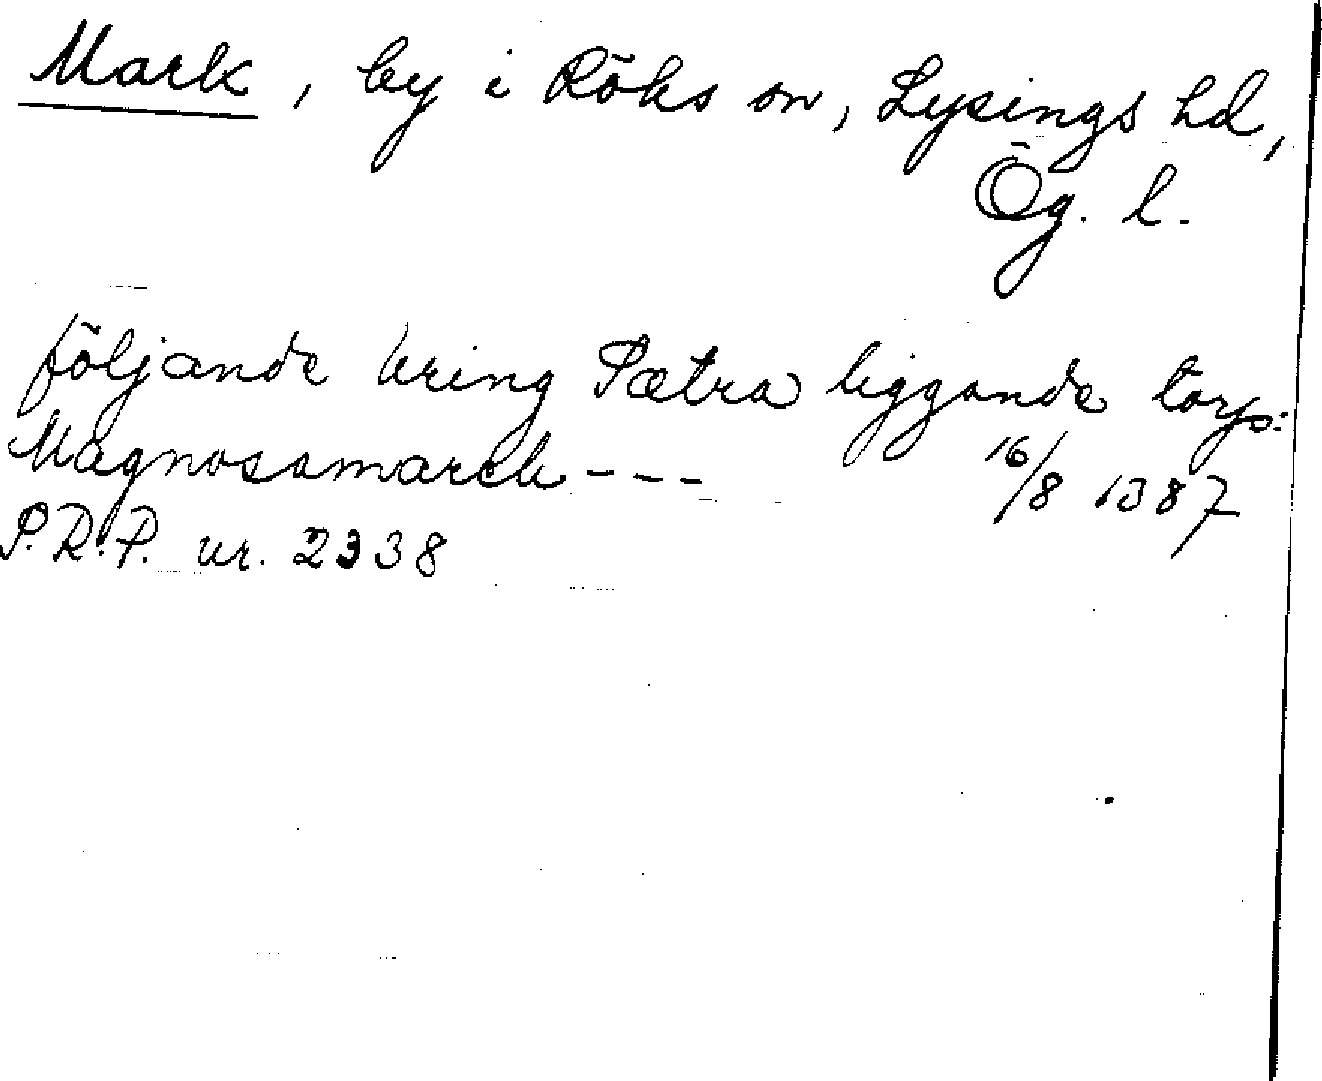 Mark, by i Röks sn, Lysings hd,
Ög. l.
följande kring Sætra liggande torp:
Magnosamarch ---
16/8 1387
S.R.P. nr. 2338